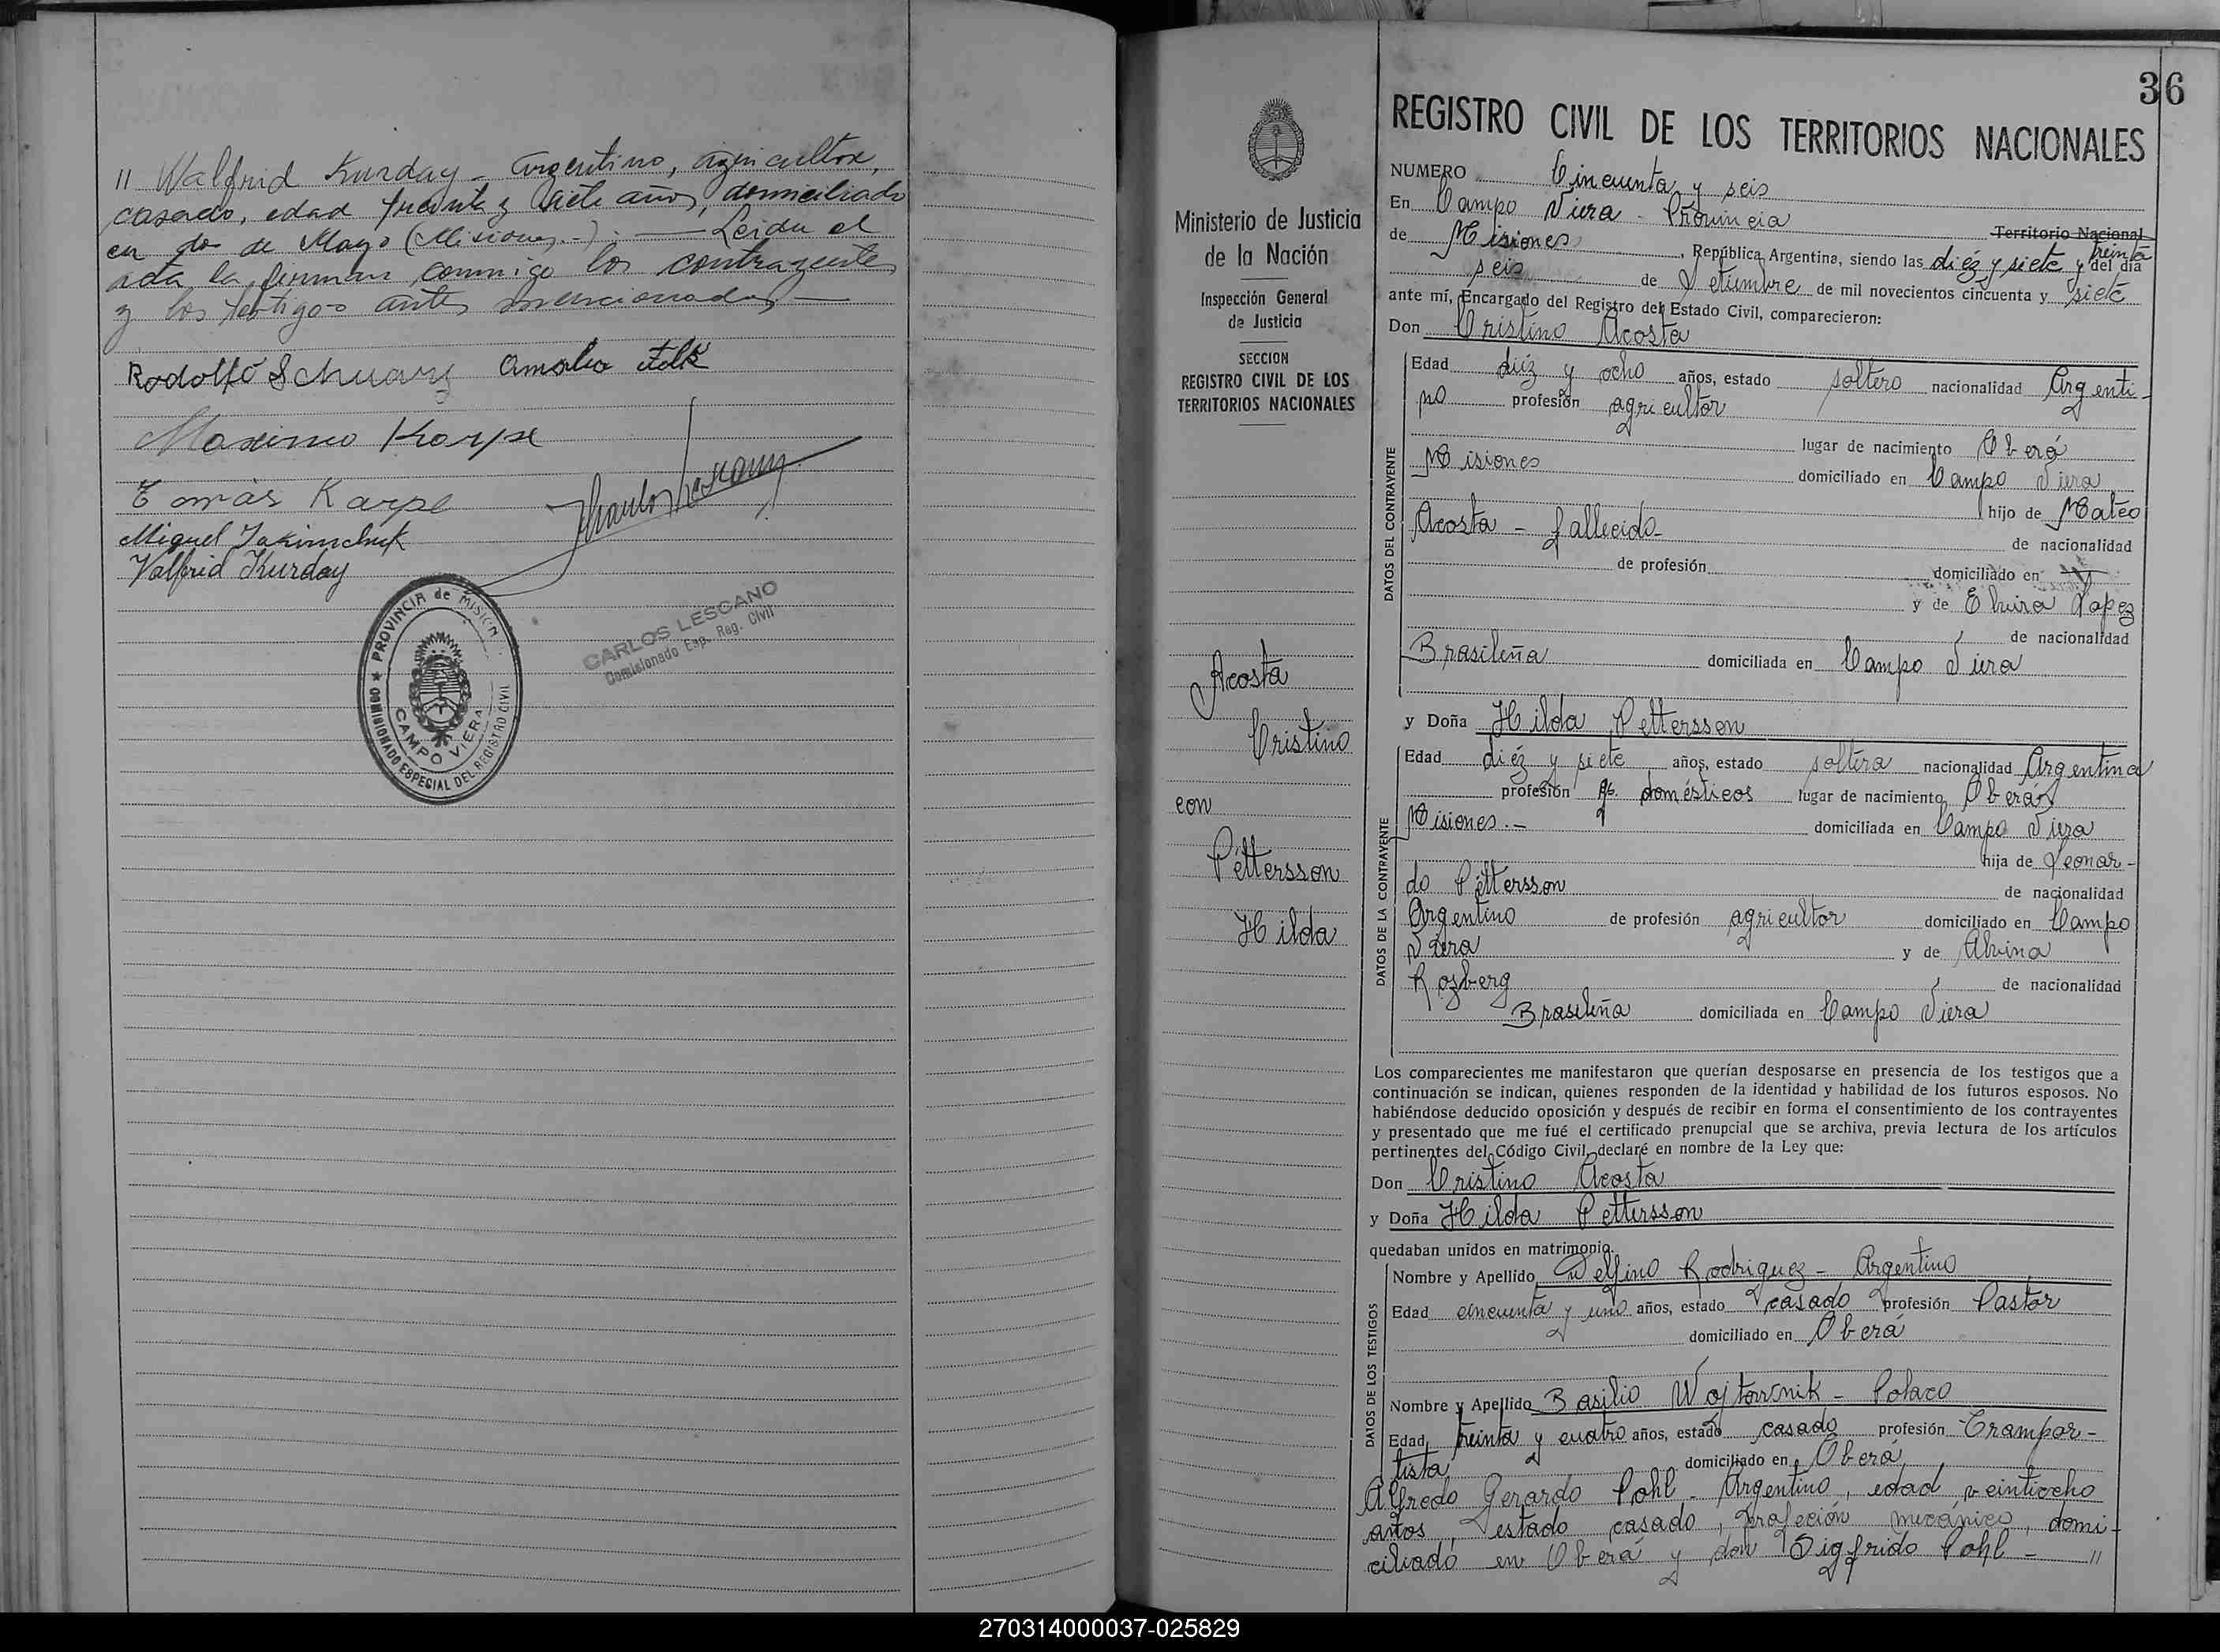 " Walfrid Kurday - argentino, agricultor,
casado, edad treinta y siete años, domiciliado
en dos de Mayo (Misiones.-). — Leida el
acta la firman conmigo los contrayentes
y los testigos antes mencionados —
Rodolfo Schwarz Amalia Falk
Maximo Karpe
Tomás Karpe
Miguel Jakimchuk
Valfrid Kurday
PROVINCIA de MISION
COMISIONADO ESPECIAL DEL REGISTRO CIVIL
CAMPO VIERA
CARLOS LESCANO
Comisionado Esp. Reg. Civil
36
Ministerio de Justicia
de la Nación
Inspección General
de Justicia
SECCION
REGISTRO CIVIL DE LOS
TERRITORIOS NACIONALES
Acosta
Cristino
con
Pettersson
Hilda
REGISTRO CIVIL DE LOS TERRITORIOS NACIONALES
NUMERO Cincuenta y seis
En Campo Viera - Provincia Territorio Nacional
de Misiones, República Argentina, siendo las diez y siete y treinta del día
seis de Setiembre de mil novecientos cincuenta y siete
ante mí, Encargado del Registro del Estado Civil, comparecieron:
Don Cristino Acosta
DATOS DEL CONTRAYENTE
Edad diéz y ocho años, estado soltero nacionalidad Argenti-
no profesión agricultor
lugar de nacimiento Oberá
Misiones domiciliado en Campo Viera
hijo de Mateo
Acosta - fallecido - de nacionalidad
de profesión domiciliado en
y de Elvira Lopez
de nacionalidad
Brasileña domiciliada en Campo Viera
y Doña Hilda Pettersson
DATOS DE LA CONTRAYENTE
Edad diéz y siete años, estado soltera nacionalidad Argentina
profesión q. domésticos lugar de nacimiento Oberá
Misiones.- domiciliada en Campo Viera
hija de Leonar-
do Pettersson de nacionalidad
Argentino de profesión agricultor domiciliado en Campo
Viera y de Alvina
Rozberg de nacionalidad
Brasileña domiciliada en Campo Viera
Los comparecientes me manifestaron que querían desposarse en presencia de los testigos que a
continuación se indican, quienes responden de la identidad y habilidad de los futuros esposos. No
habiéndose deducido oposición y después de recibir en forma el consentimiento de los contrayentes
y presentado que me fué el certificado prenupcial que se archiva, previa lectura de los artículos
pertinentes del Código Civil, declaré en nombre de la Ley que:
Don Cristino Acosta
y Doña Hilda Pettersson
quedaban unidos en matrimonio.
DATOS DE LOS TESTIGOS
Nombre y Apellido Delfino Rodriguez - Argentino
Edad cincuenta y uno años, estado casado profesión Pastor
domiciliado en Oberá
Nombre y Apellido Basilio Wojtowznik - Polaco
Edad treinta y cuatro años, estado casado profesión Transpor-
tista domiciliado en Oberá
Alfredo Gerardo Pohl - Argentino, edad veintiocho
años, estado casado, profeción mecánico, domi-
ciliado en Oberá y don Sigfrido Pohl - "
270314000037-025829